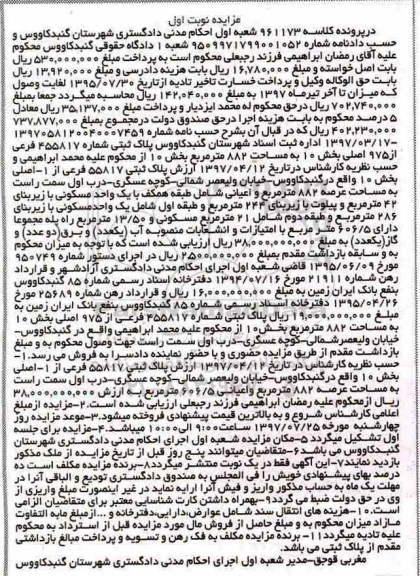 مزایده نوبت اول
درپرونده کلاسه ۹۶۱۱۷۳ شعبه اول احکام مدنی دادگستری شهرستان گنبدکاووس و
حسب دادنامه شماره ۹۵۰۹۹۷۱۷۹۹۰۰۱۰۵۲ شعبه ۱ دادگاه حقوقی گنبدکاووس محکوم
علیه آقای رمضان ابراهیمی فرزند رجبعلی محکوم است به پرداخت مبلغ ۵۳۰,۰۰۰,۰۰۰ ریال
بابت اصل خواسته و مبلغ ۱۶,۷۸۰,۰۰۰ ریال بابت هزینه دادرسی و مبلغ ۱۳,۹۲۰,۰۰۰ ریال
بابت حق الوکاله وکیل و پرداخت خسارت تاخیر تادیه ازتاریخ ۱۳۹۵/۰۷/۳۰ لغایت وصول
که میزان تا آخر تیرماه ۱۳۹۷ به مبلغ ۱۴۲,۰۴۰,۰۰۰ ریال محاسبه میگردد جمعا بمبلغ
۷۰۲,۷۴۰,۰۰۰ ریال درحق محکوم له محمد ایزدیار و پرداخت مبلغ ۳۵,۱۳۷,۰۰۰ ریال معادل
۵ درصد محکوم به بابت هزینه اجرا درحق صندوق دولت درمجموع بمبلغ ۷۳۷,۸۷۷,۰۰۰
۴۰۲,۲۳۰,۰۰۰ ریال که در قبال آن بشرح حسب نامه شماره ۱۳۹۷۰۵۸۱۲۰۰۴۰۰۰۷۴۵۹
-۱۳۹۷/۰۳/۱۷ اداره ثبت اسناد شهرستان گنبدکاووس پلاک ثبتی شماره ۴۵۵۸۱۷ فرعی
از۹۷۵ اصلی بخش ۱۰ به مساحت ۸۸۲ مترمربع بخش ۱۰ از محکوم علیه محمد ابراهیمی و
حسب نظریه کارشناس درتاریخ ۱۳۹۷/۰۴/۱۲ ارزش پلاک ثبتی ۵۵۸۱۷ فرعی از ۱-اصلی
بخش ۱۰ واقع درگنبدکاووس-خیابان ولیعصر شمالی-کوچه عسگری-درب اول سمت راست
به مساحت عرصه ۸۸۲ مترمربع و اعیانی شامل طبقه همکف با یک واحد مسکونی با زیربنای
۴۲ مترمربع و پیلوت با زیربنای ۲۴۴ مترمربع و طبقه اول شامل یک واحدمسکونی با زیربنای
۲۸۶ مترمربع و طبقه دوم شامل ۲۱ مترمربع مسکونی و ۱۳/۵۰ مترمربع راه پله مجموعا
دارای ۶۰۶/۵ متر مربع با امتیازات و انشعابات منصوبه آب (یکعدد) و برق(دو عدد) و
گاز(یکعدد) به مبلغ ۳۸,۰۰۰,۰۰۰,۰۰۰ ریال ارزیابی شده است که با توجه به میزان محکوم
به و سابقه بازداشت مقدم بمبلغ ۲۵۰۰,۰۰۰,۰۰۰ ریال در اجرای دستور شماره ۹۵۰۷۴۹
مورخ ۱۳۹۵/۰۶/۰۹ قاضی شعبه اول اجرای احکام مدنی دادگستری آزادشهر و قرارداد
رهن شماره ۲۱۹۱۱ مورخ ۱۳۹۴/۰۷/۱۶ دفترخانه اسناد رسمی شماره ۸۵ گنبدکاووس
بنفع بانک ایران زمین به مبلغ ۱۶,۰۰۰,۰۰۰,۰۰۰ ریال و قرارداد رهن شماره ۲۵۶۸۹ مورخ
۱۳۹۵/۰۴/۲۶ دفترخانه اسناد رسمی شماره ۸۵ گنبدکاووس بنفع بانک ایران زمین به
مبلغ ۱۹,۰۰۰,۰۰۰,۰۰۰ ریال پلاک ثبتی شماره ۴۵۵۸۱۷ فرعی از ۹۷۵ اصلی بخش ۱۰
به مساحت ۸۸۲ مترمربع بخش ۱۰ از محکوم علیه محمد ابراهیمی واقع در گنبدکاووس-
خیابان ولیعصرشمالی-کوچه عسگری-درب اول سمت راست جهت وصول محکوم به و مبلغ
بازداشت مقدم از طریق مزایده حضوری و با حضور نماینده دادسرا به فروش می رسد.۱-
حسب نظریه کارشناس در تاریخ ۱۳۹۷/۰۴/۱۲ ارزش پلاک ثبتی ۵۵۸۱۷ فرعی از ۱-اصلی
بخش ۱۰ واقع درگنبدکاووس-خیابان ولیعصر شمالی-کوچه عسگری-درب اول سمت راست
به مساحت عرصه ۸۸۲ مترمربع واعیانی ۶۰۶/۵ مترمربع به ارزش ۳۸,۰۰۰,۰۰۰,۰۰۰
ریال ازمحکوم علیه رمضان ابراهیمی فرزند رجبعلی ارزیابی شده است.۲-مزایده ازمبلغ
اعلامی کارشناس شروع و به بالاترین قیمت پیشنهادی فروخته میشود.۳-موعد مزایده روز
چهارشنبه مورخه ۱۳۹۷/۰۷/۲۵ ساعت۹:۰۰ الی۱۰:۰۰ میباشد.۴-مزایده برای جلسه
اول تشکیل میگردد ۵-مکان مزایده شعبه اول اجرای احکام مدنی دادگستری شهرستان
گنبدکاووس می باشد ۶-متقاضیان میتوانند پنج روز قبل از تاریخ مزایده از ملک مذکور
بازدید نمایند ۷-این آگهی فقط در یک نوبت منتشر میگردد۸-برنده مزایده مکلف است ده
درصد بهای پیشنهادی خویش را فی المجلس به صندوق دادگستری تودیع و الباقی آنرا در
مهلت یک ماه به حساب مذکور واریز و فیش آنرا ارایه نماید در غیر اینصورت مبلغ واریزی از
وی در حق دولت ضبط می گردد۹-بهمراه داشتن کارت شناسایی معتبر برای متقاضیان الزامی
است.۱۰-هزینه های انتقال سند شامل عوارض،دارایی،دفترخانه و ...ازمبلغ مابه التفاوت
مازاد میزان محکوم به و مبلغ حاصل از فروش مال مورد مزایده قبل از استرداد به محکوم
علیه تادیه میگردد۱۱- برنده مزایده مکلف به فک رهن و تسویه و پرداخت مبالغ بازداشتی
مقدم از پلاک ثبتی می باشد.
مغربی قوجق-مدیر شعبه اول اجرای احکام مدنی دادگستری شهرستان گنبدکاووس